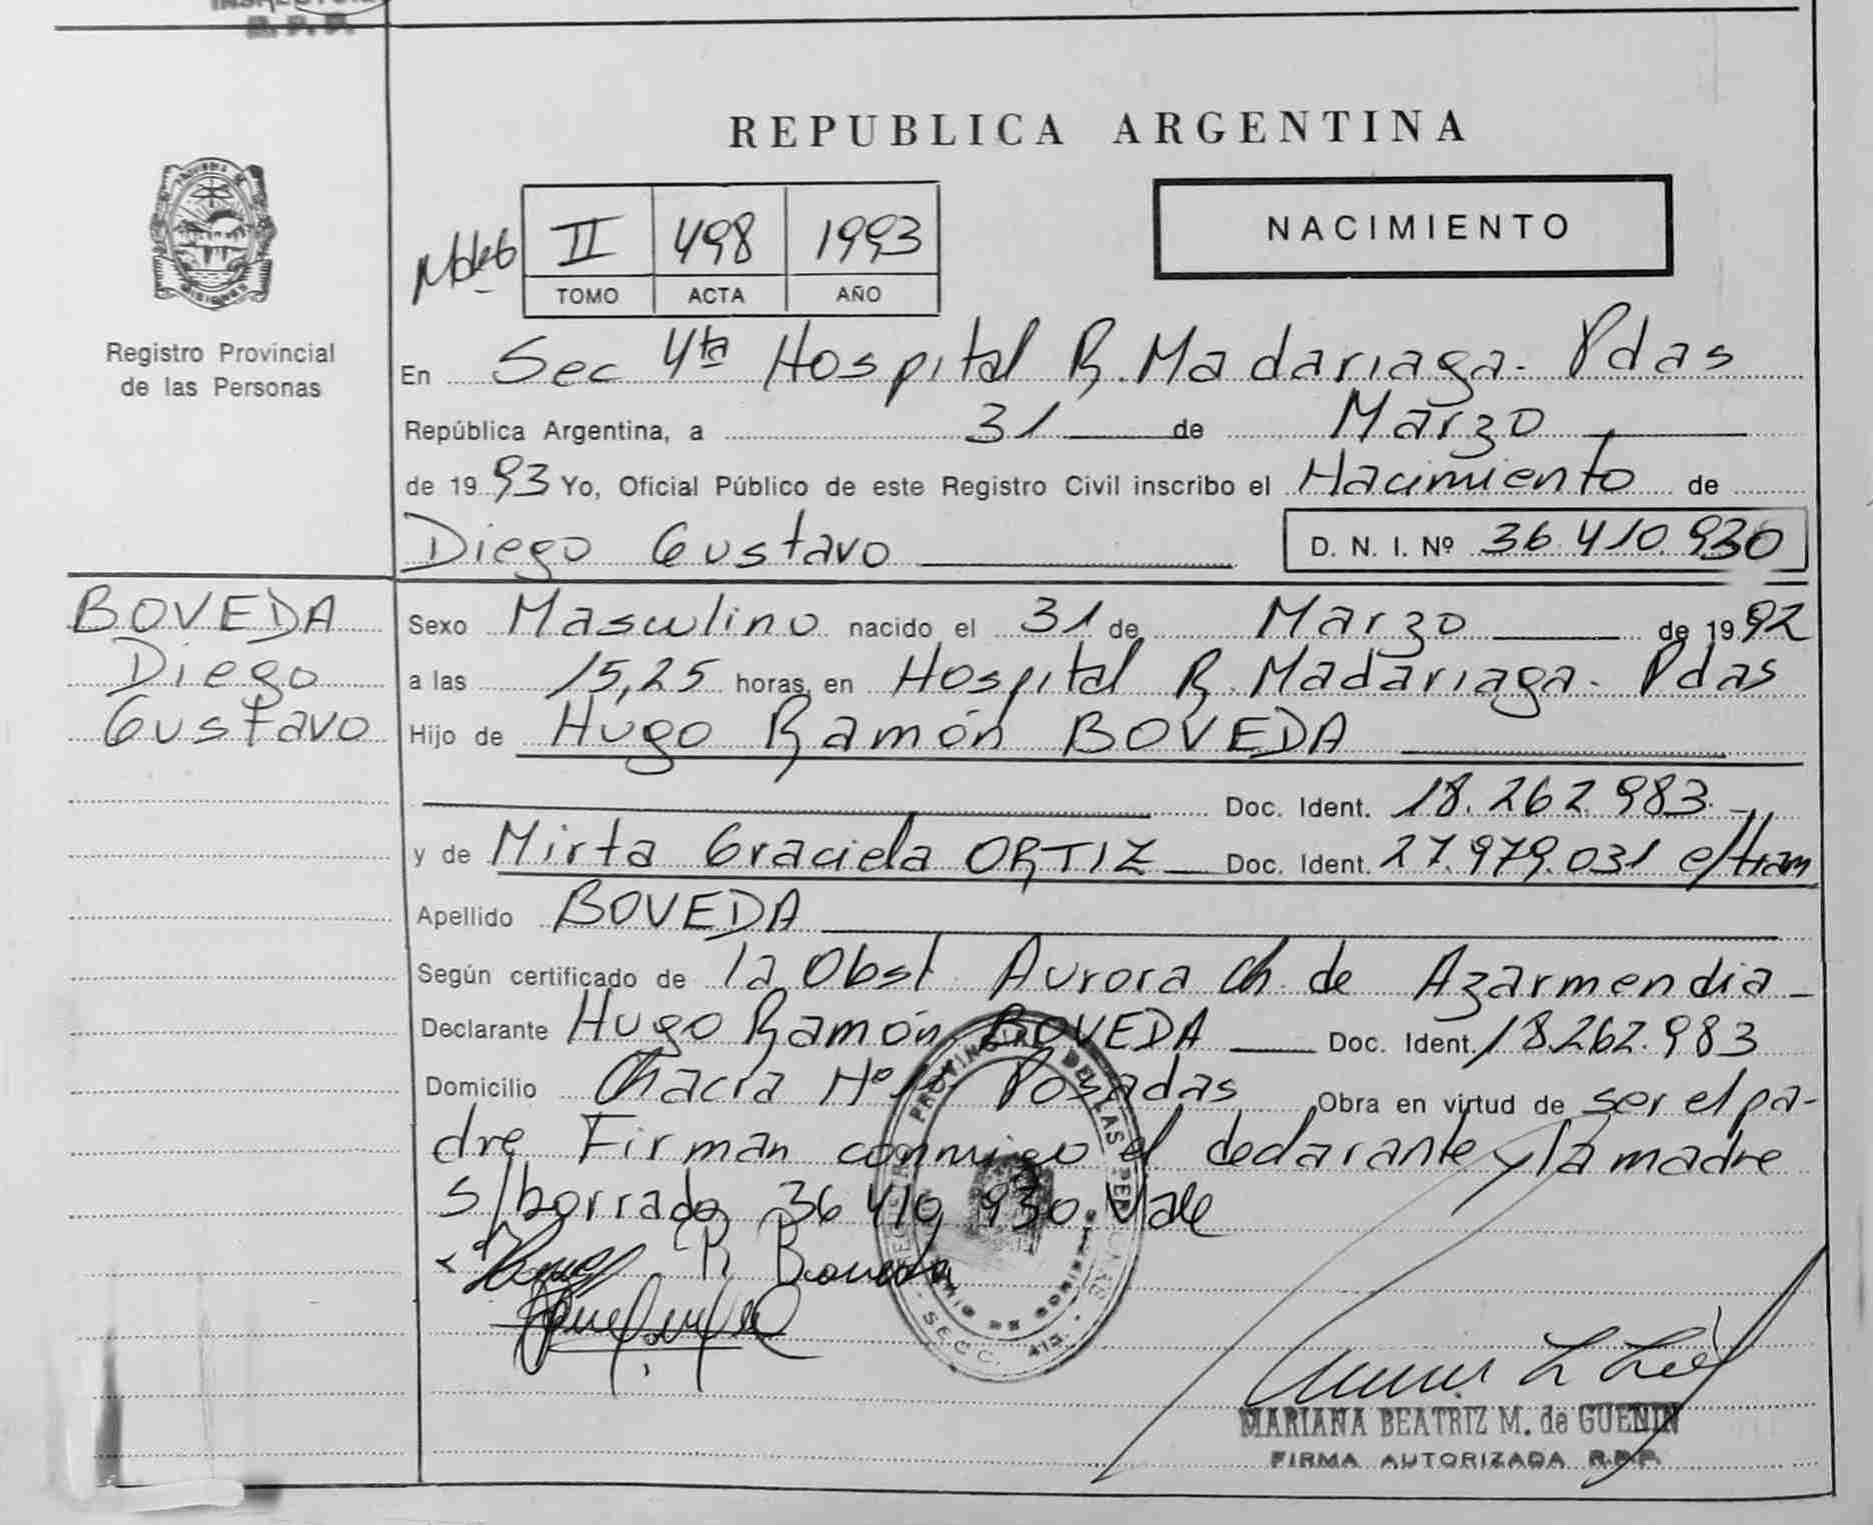 R. P. P.
REPUBLICA ARGENTINA
II 498 1993
TOMO ACTA AÑO
NACIMIENTO
MISIONES
Registro Provincial
de las Personas
En Sec 4ta Hospital R. Madariaga - Pdas
República Argentina, a 31 de Marzo
de 1993 Yo, Oficial Público de este Registro Civil inscribo el Nacimiento de
Diego Gustavo D. N. I. Nº 36.410.930
BOVEDA
Diego
Gustavo
Sexo Masculino nacido el 31 de Marzo de 1992
a las 15,25 horas, en Hospital R. Madariaga - Pdas
Hijo de Hugo Ramón BOVEDA
Doc. Ident. 18.262.983
y de Mirta Graciela ORTIZ Doc. Ident. 27.979.031 e/tram
Apellido BOVEDA
Según certificado de la Obst. Aurora Ch. de Azarmendia
Declarante Hugo Ramón BOVEDA Doc. Ident. 18.262.983
Domicilio Chacra Nº Posadas Obra en virtud de ser el pa-
dre Firman conmigo el declarante y la madre
s/borrado 36 410 930 Vale
R Boveda
MARIANA BEATRIZ M. de GUENIN
FIRMA AUTORIZADA R.P.P.